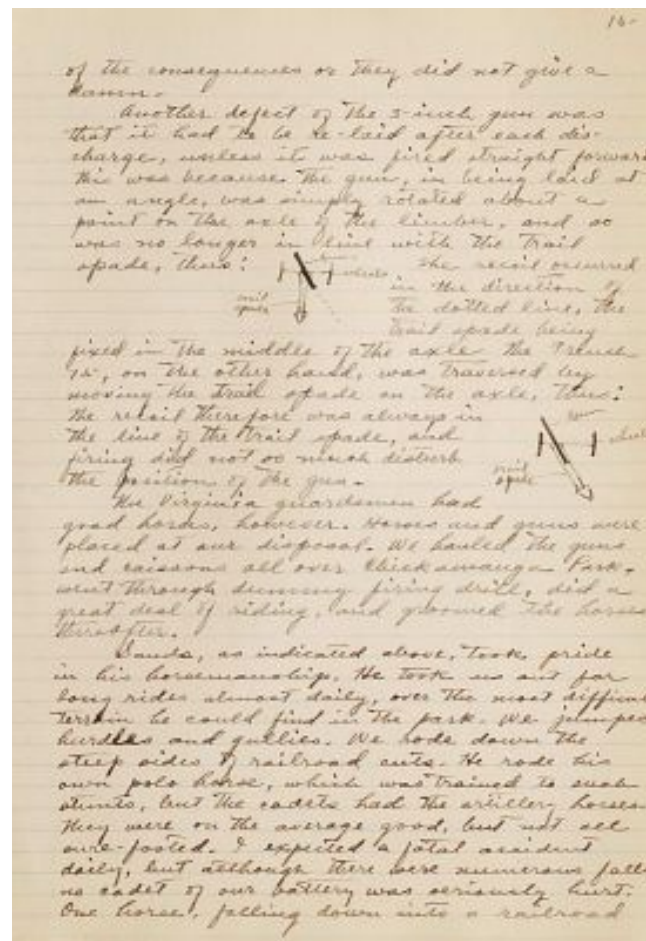 16-
of the consequences or they did not give a
damn.
Another defect of the 3-inch gun was
that it had to be re-laid after each dis-
charge, unless it was fired straight forward
this was because the gun, in being laid at
an angle, was simply rotated about a
point on the axle of the limber, and so
was no longer in line with the trail
spade, thus:
wheels
trail
spade
The recoil occurred
in the direction of
the dotted line, the
trail spade being
fixed in the middle of the axle. The French
75, on the other hand, was traversed by
moving the trail spade on the axle, thus:
the recoil therefore was always in
the line of the trail spade, and
firing did not so much disturb
the position of the gun.
trail
spade
The Virginia guardsmen had
good horses, however. Horses and guns were
placed at our disposal. We hauled the guns
and caissons all over Chickamauga Park,
went through dummy firing drill, did a
great deal of riding, and groomed the horses
thereafter.
Sands, as indicated above, took pride
in his horsemanship. He took us out for
long rides almost daily, over the most difficul
terrain he could find in the park. We jumped
hurdles and gullies. We rode down the
steep sides of railroad cuts. He rode his
own polo horse, which was trained to such
stunts, but the cadets had the artillery horses
They were on the average good, but not all
sure-footed. I expected a fatal accident
daily, but although there were numerous fall
no cadet of our battery was seriously hurt.
One horse, falling down into a railroad